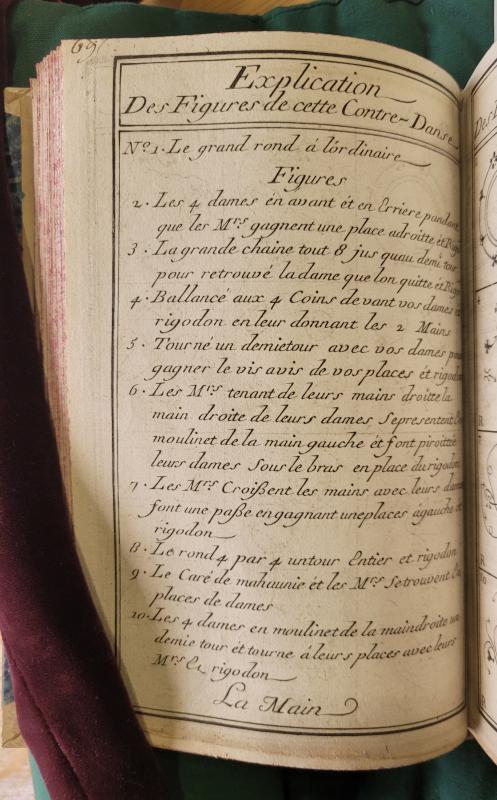 69
Explication
Des Figures de cette Contre-Danse
Nº 1. Le grand rond á lórdinaire
Figures
2. Les 4 dames én avant ét en Erriere pendant
que les Mrs gagnent une place adroitte ét Rig
3. La grande chaine tout 8 jus quau demi tour
pour retrouvé la dame que lon quitte ét Rig
4. Ballancé aux 4 Coins devant vos dames et
rigodon en leur donnant les 2 Mains
5. Tourné un demietour avec vos dames pour
gagner le vis avis de vos places ét rigodon
6. Les Mrs tenant de leurs mains droitte la
main droite de leurs dames Sepresentent
moulinet de la main gauche ét font piroitté
leurs dames Sous le bras en place du rigodon
7. Les Mrs Croißent les mains avec leurs dames
font une paße en gagnant une places agauche et
rigodon
8. Le rond 4 par 4 un tour Entier et rigodon
9. Le Caré de mahaunie ét les Mrs Setrouvent
places de dames
10. Les 4 dames en moulinet de la main droite un
demie tour ét tourne á leurs places avec leurs
Mrs et rigodon
La Main